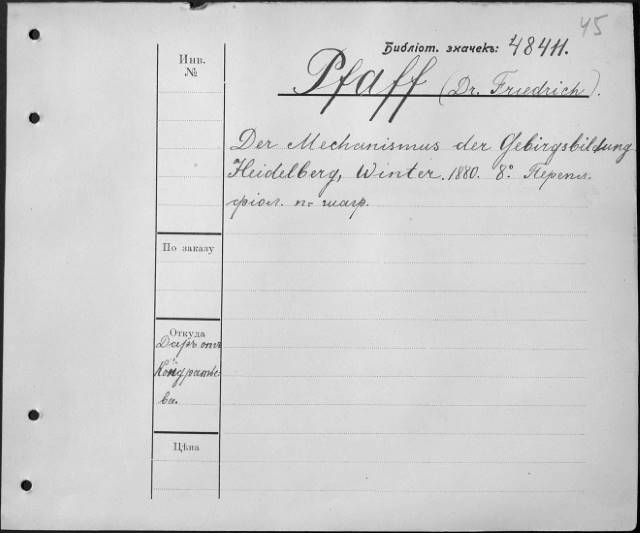 45
Библіот. значекъ: 48411.
Инв. №
Pfaff (Dr. Friedrich).
Der Mechanismus der Gebirgsbildung
Heidelberg, Winter. 1880. 8°. Перепл.
фіол. п. шагр.
По заказу
Откуда
Даръ отъ
Кондратье-
ва.
Цѣна